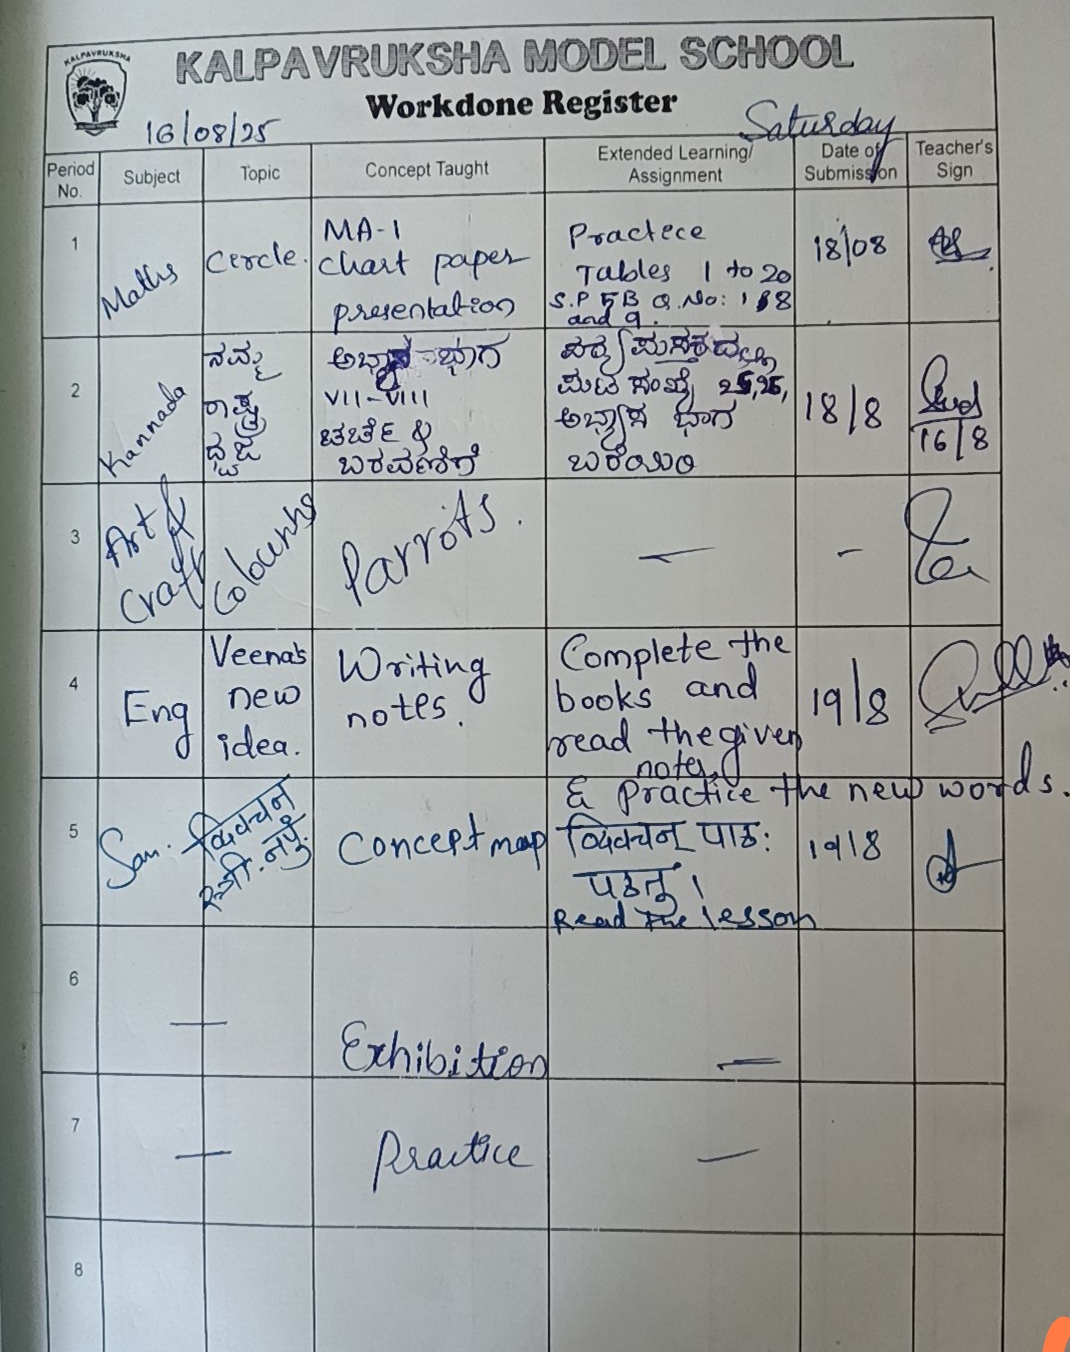 KALPAVRUKSHA
KALPAVRUKSHA MODEL SCHOOL
Workdone Register
16/08/25 Saturday
Period No. Subject Topic Concept Taught Extended Learning/ Assignment Date of Submission Teacher's Sign
1 Maths Circle. MA-1
chart paper
presentation
Practece
Tables 1 to 20
S.P 5B Q.No: 1, 8
and 9.
18/08
2 Kannada ನಮ್ಮ
ರಾಷ್ಟ್ರ
ಧ್ವಜ
ಅಭ್ಯಾಸ ಭಾಗ
VII-VIII
ಚರ್ಚೆ &
ಬರವಣಿಗೆ
ಪಠ್ಯಪುಸ್ತಕದಲ್ಲಿ
ಪುಟ ಸಂಖ್ಯೆ 25,26,
ಅಭ್ಯಾಸ ಭಾಗ
ಬರೆಯಿರಿ
18/8
16/8
3 Art &
Craft
Parrots.
— -
4 Eng Veena's
new
idea.
Writing
notes.
Complete the
books and
read the given
notes,
& Practice the new words.
19/8
5 San. द्विवचन
स्त्री. नपुं.
Concept map
द्विवचन पाठः
पठतु।
Read the lesson
19/8
6 — Exhibition —
7 — Practice —
8